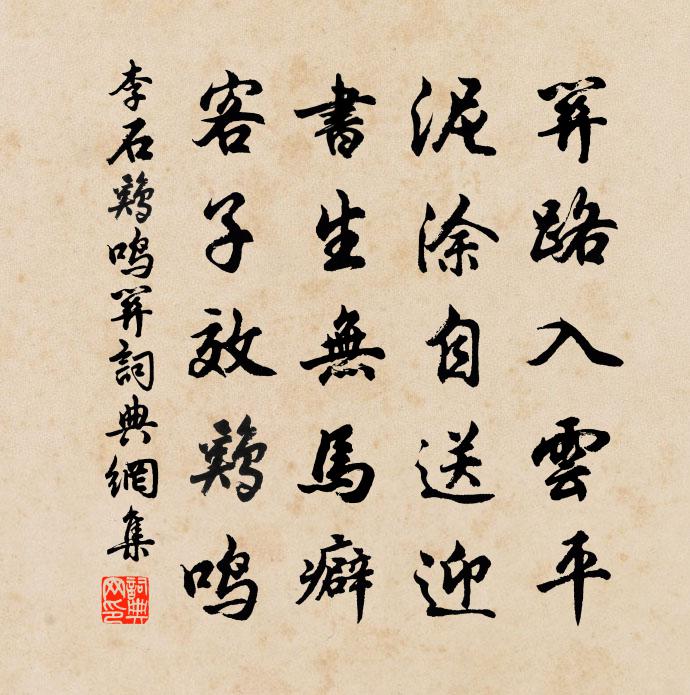 關路入雲平
泥涂自送迎
書生無馬癖
客子效鷄鳴
李石鷄鳴關詞典網集
詞典网印